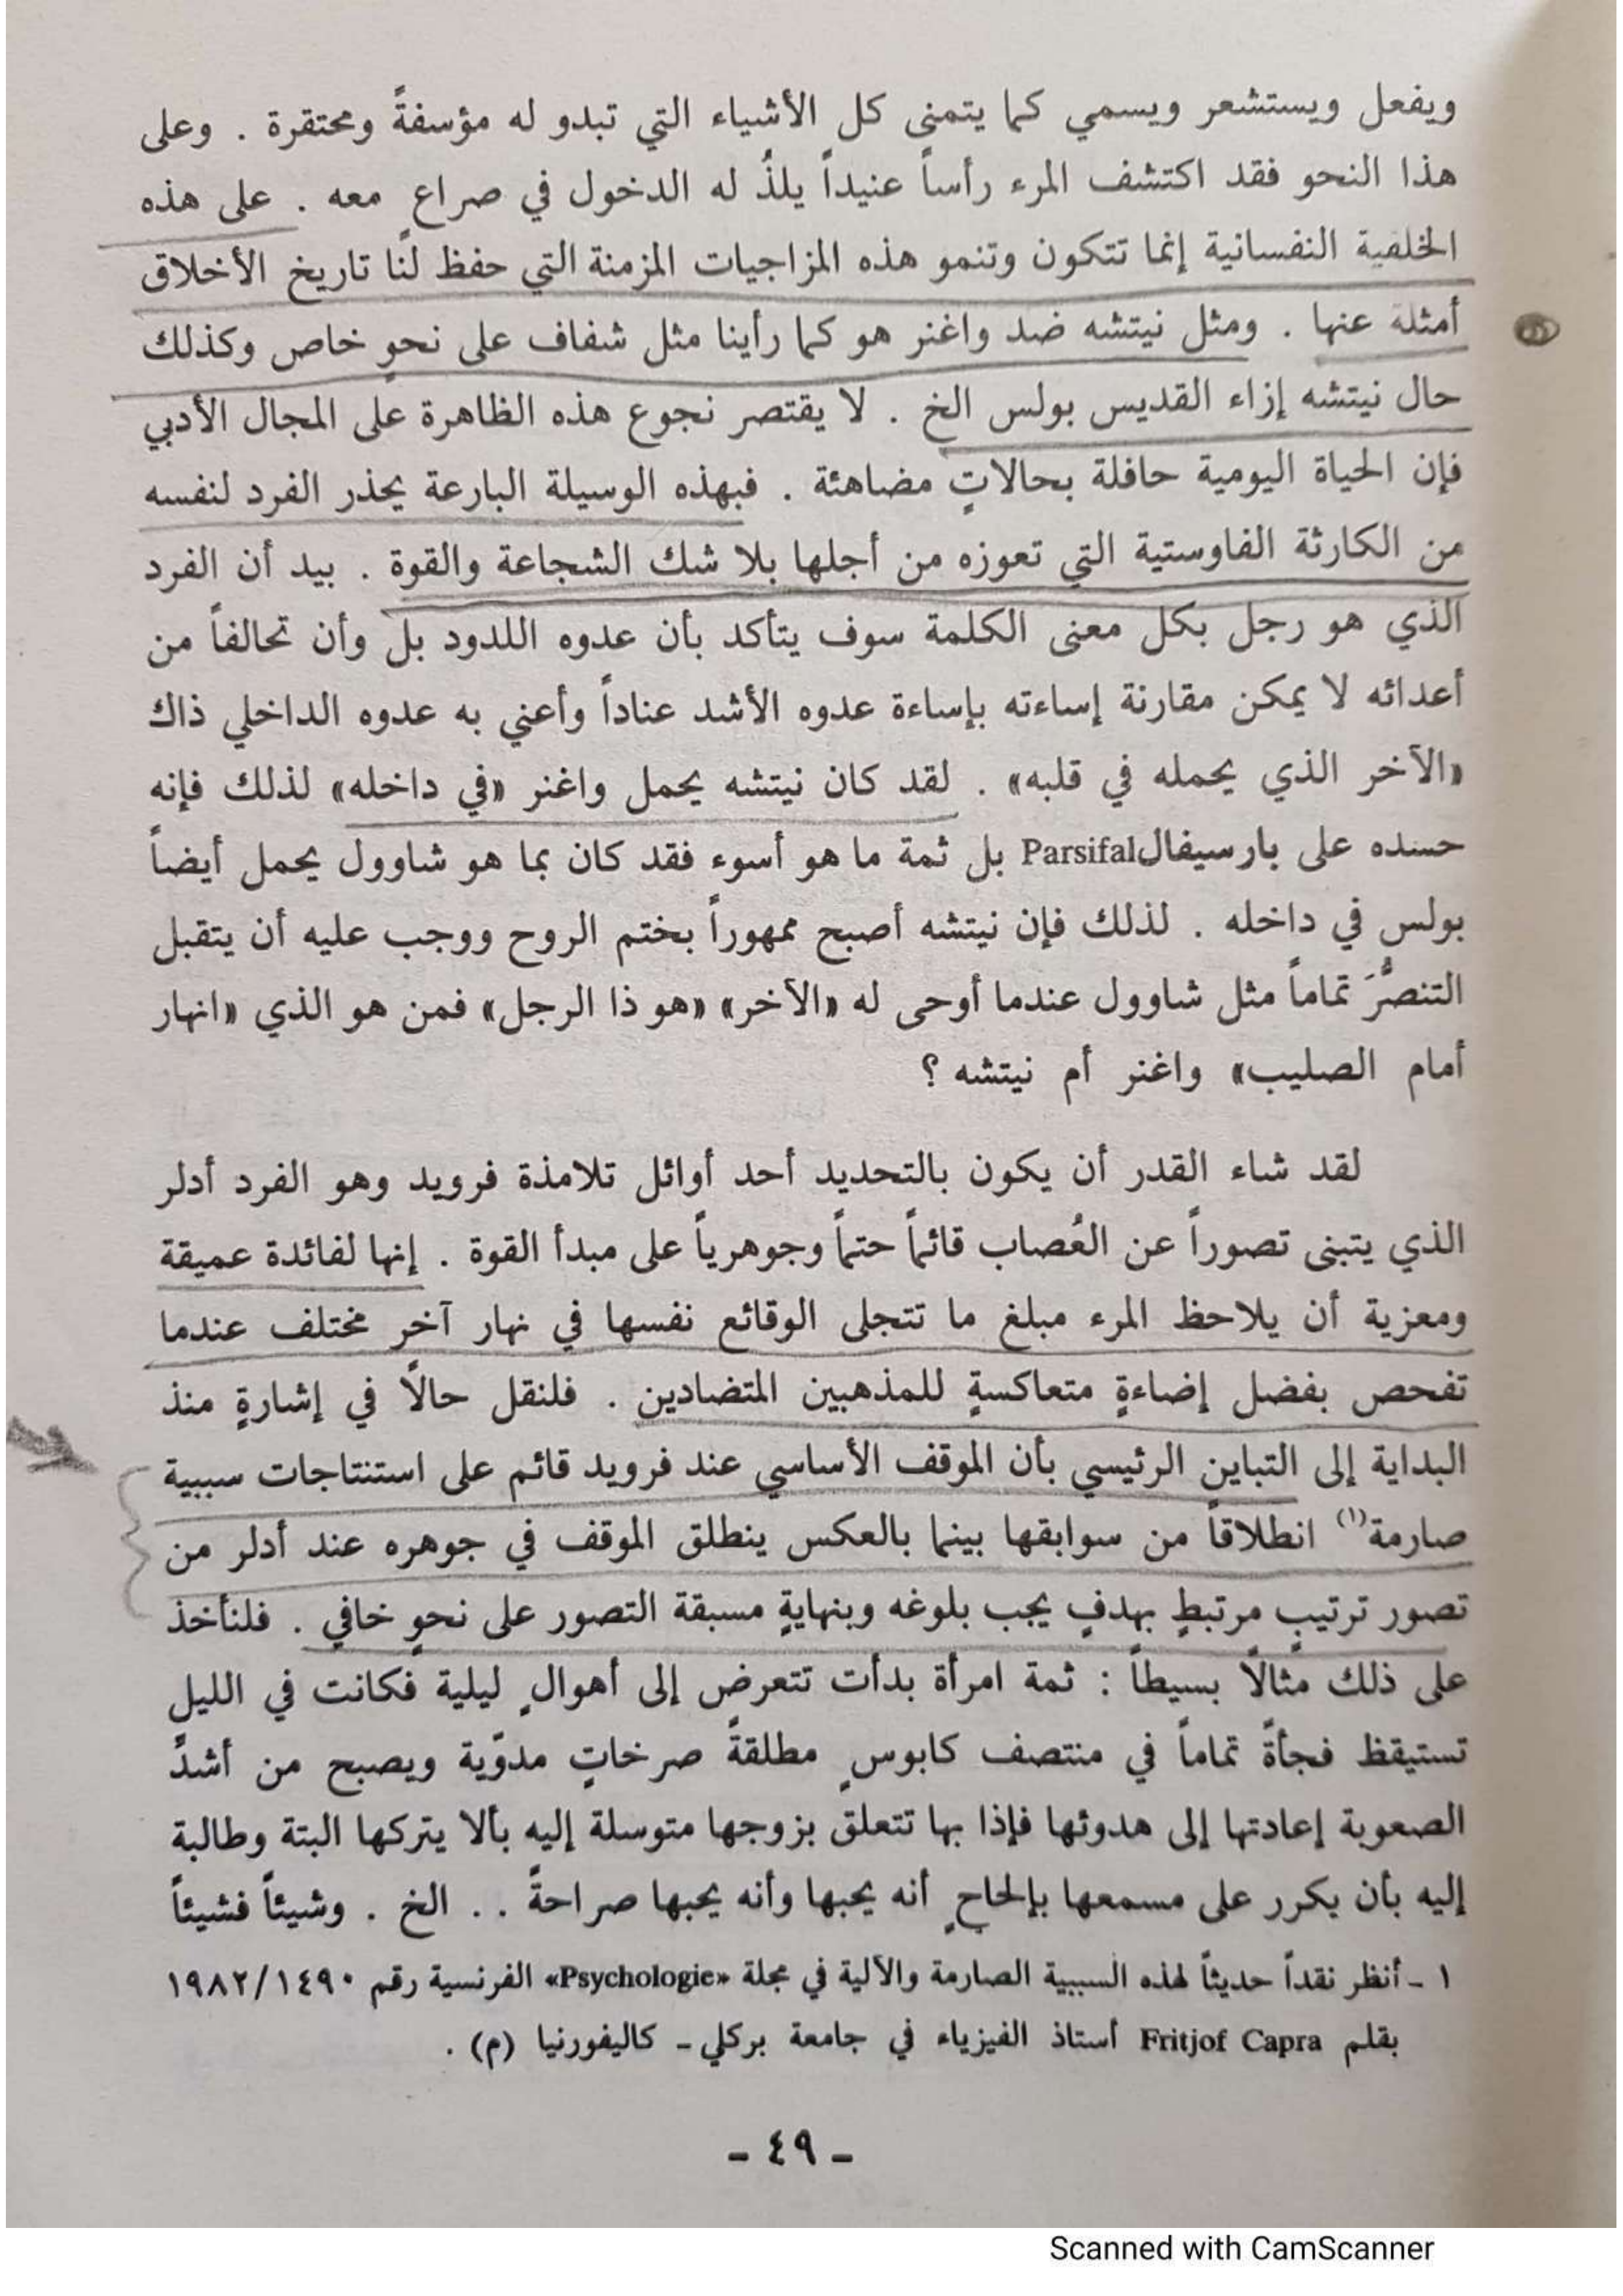 ويفعل ويستشعر ويسمي كما يتمنى كل الأشياء التي تبدو له مؤسفةً ومحتقرة . وعلى
هذا النحو فقد اكتشف المرء رأساً عنيداً يلذُ له الدخول في صراع معه . على هذه
الخلفية النفسانية إنما تتكون وتنمو هذه المزاجيات المزمنة التي حفظ لنا تاريخ الأخلاق
أمثلة عنها . ومثل نيتشه ضد واغنر هو كما رأينا مثل شفاف على نحوٍ خاص وكذلك
حال نيتشه إزاء القديس بولس الخ . لا يقتصر نجوع هذه الظاهرة على المجال الأدبي
فإن الحياة اليومية حافلة بحالاتٍ مضاهئة . فبهذه الوسيلة البارعة يحذر الفرد لنفسه
من الكارثة الفاوستية التي تعوزه من أجلها بلا شك الشجاعة والقوة . بيد أن الفرد
الذي هو رجل بكل معنى الكلمة سوف يتأكد بأن عدوه اللدود بل وأن تحالفاً من
أعدائه لا يمكن مقارنة إساءته بإساءة عدوه الأشد عناداً وأعني به عدوه الداخلي ذاك
«الآخر الذي يحمله في قلبه» . لقد كان نيتشه يحمل واغنر «في داخله» لذلك فإنه
حسده على بارسيفالParsifal بل ثمة ما هو أسوء فقد كان بما هو شاوول يحمل أيضاً
بولس في داخله . لذلك فإن نيتشه أصبح ممهوراً بختم الروح ووجب عليه أن يتقبل
التنصُّرَ تماماً مثل شاوول عندما أوحى له «الآخر» «هو ذا الرجل» فمن هو الذي «انهار
أمام الصليب» واغنر أم نيتشه ؟
لقد شاء القدر أن يكون بالتحديد أحد أوائل تلامذة فرويد وهو الفرد أدلر
الذي يتبنى تصوراً عن العُصاب قائماً حتماً وجوهرياً على مبدأ القوة . إنها لفائدة عميقة
ومعزية أن يلاحظ المرء مبلغ ما تتجلى الوقائع نفسها في نهار آخر مختلف عندما
تفحص بفضل إضاءةٍ متعاكسةٍ للمذهبين المتضادين . فلنقل حالاً في إشارةٍ منذ
البداية إلى التباين الرئيسي بأن الموقف الأساسي عند فرويد قائم على استنتاجات سببية
صارمة(١) انطلاقاً من سوابقها بينما بالعكس ينطلق الموقف في جوهره عند أدلر من
تصور ترتيبٍ مرتبطٍ بهدفٍ يجب بلوغه وبنهايةٍ مسبقة التصور على نحوٍ خافي . فلنأخذ
على ذلك مثالاً بسيطاً : ثمة امرأة بدأت تتعرض إلى أهوالٍ ليلية فكانت في الليل
تستيقظ فجأةً تماماً في منتصف كابوسٍ مطلقةً صرخاتٍ مدوّية ويصبح من أشدً
الصعوبة إعادتها إلى هدوئها فإذا بها تتعلق بزوجها متوسلة إليه بألا يتركها البتة وطالبة
إليه بأن يكرر على مسمعها بإلحاحٍ أنه يحبها وأنه يحبها صراحةً . . الخ . وشيئاً فشيئاً
١ ـ أنظر نقداً حديثاً لهذه السببية الصارمة والآلية في مجلة «Psychologie» الفرنسية رقم ١٩٨٢/١٤٩٠
بقلم Fritjof Capra أستاذ الفيزياء في جامعة بركلي ـ كاليفورنيا (م) .
- ٤٩ -
Scanned with CamScanner